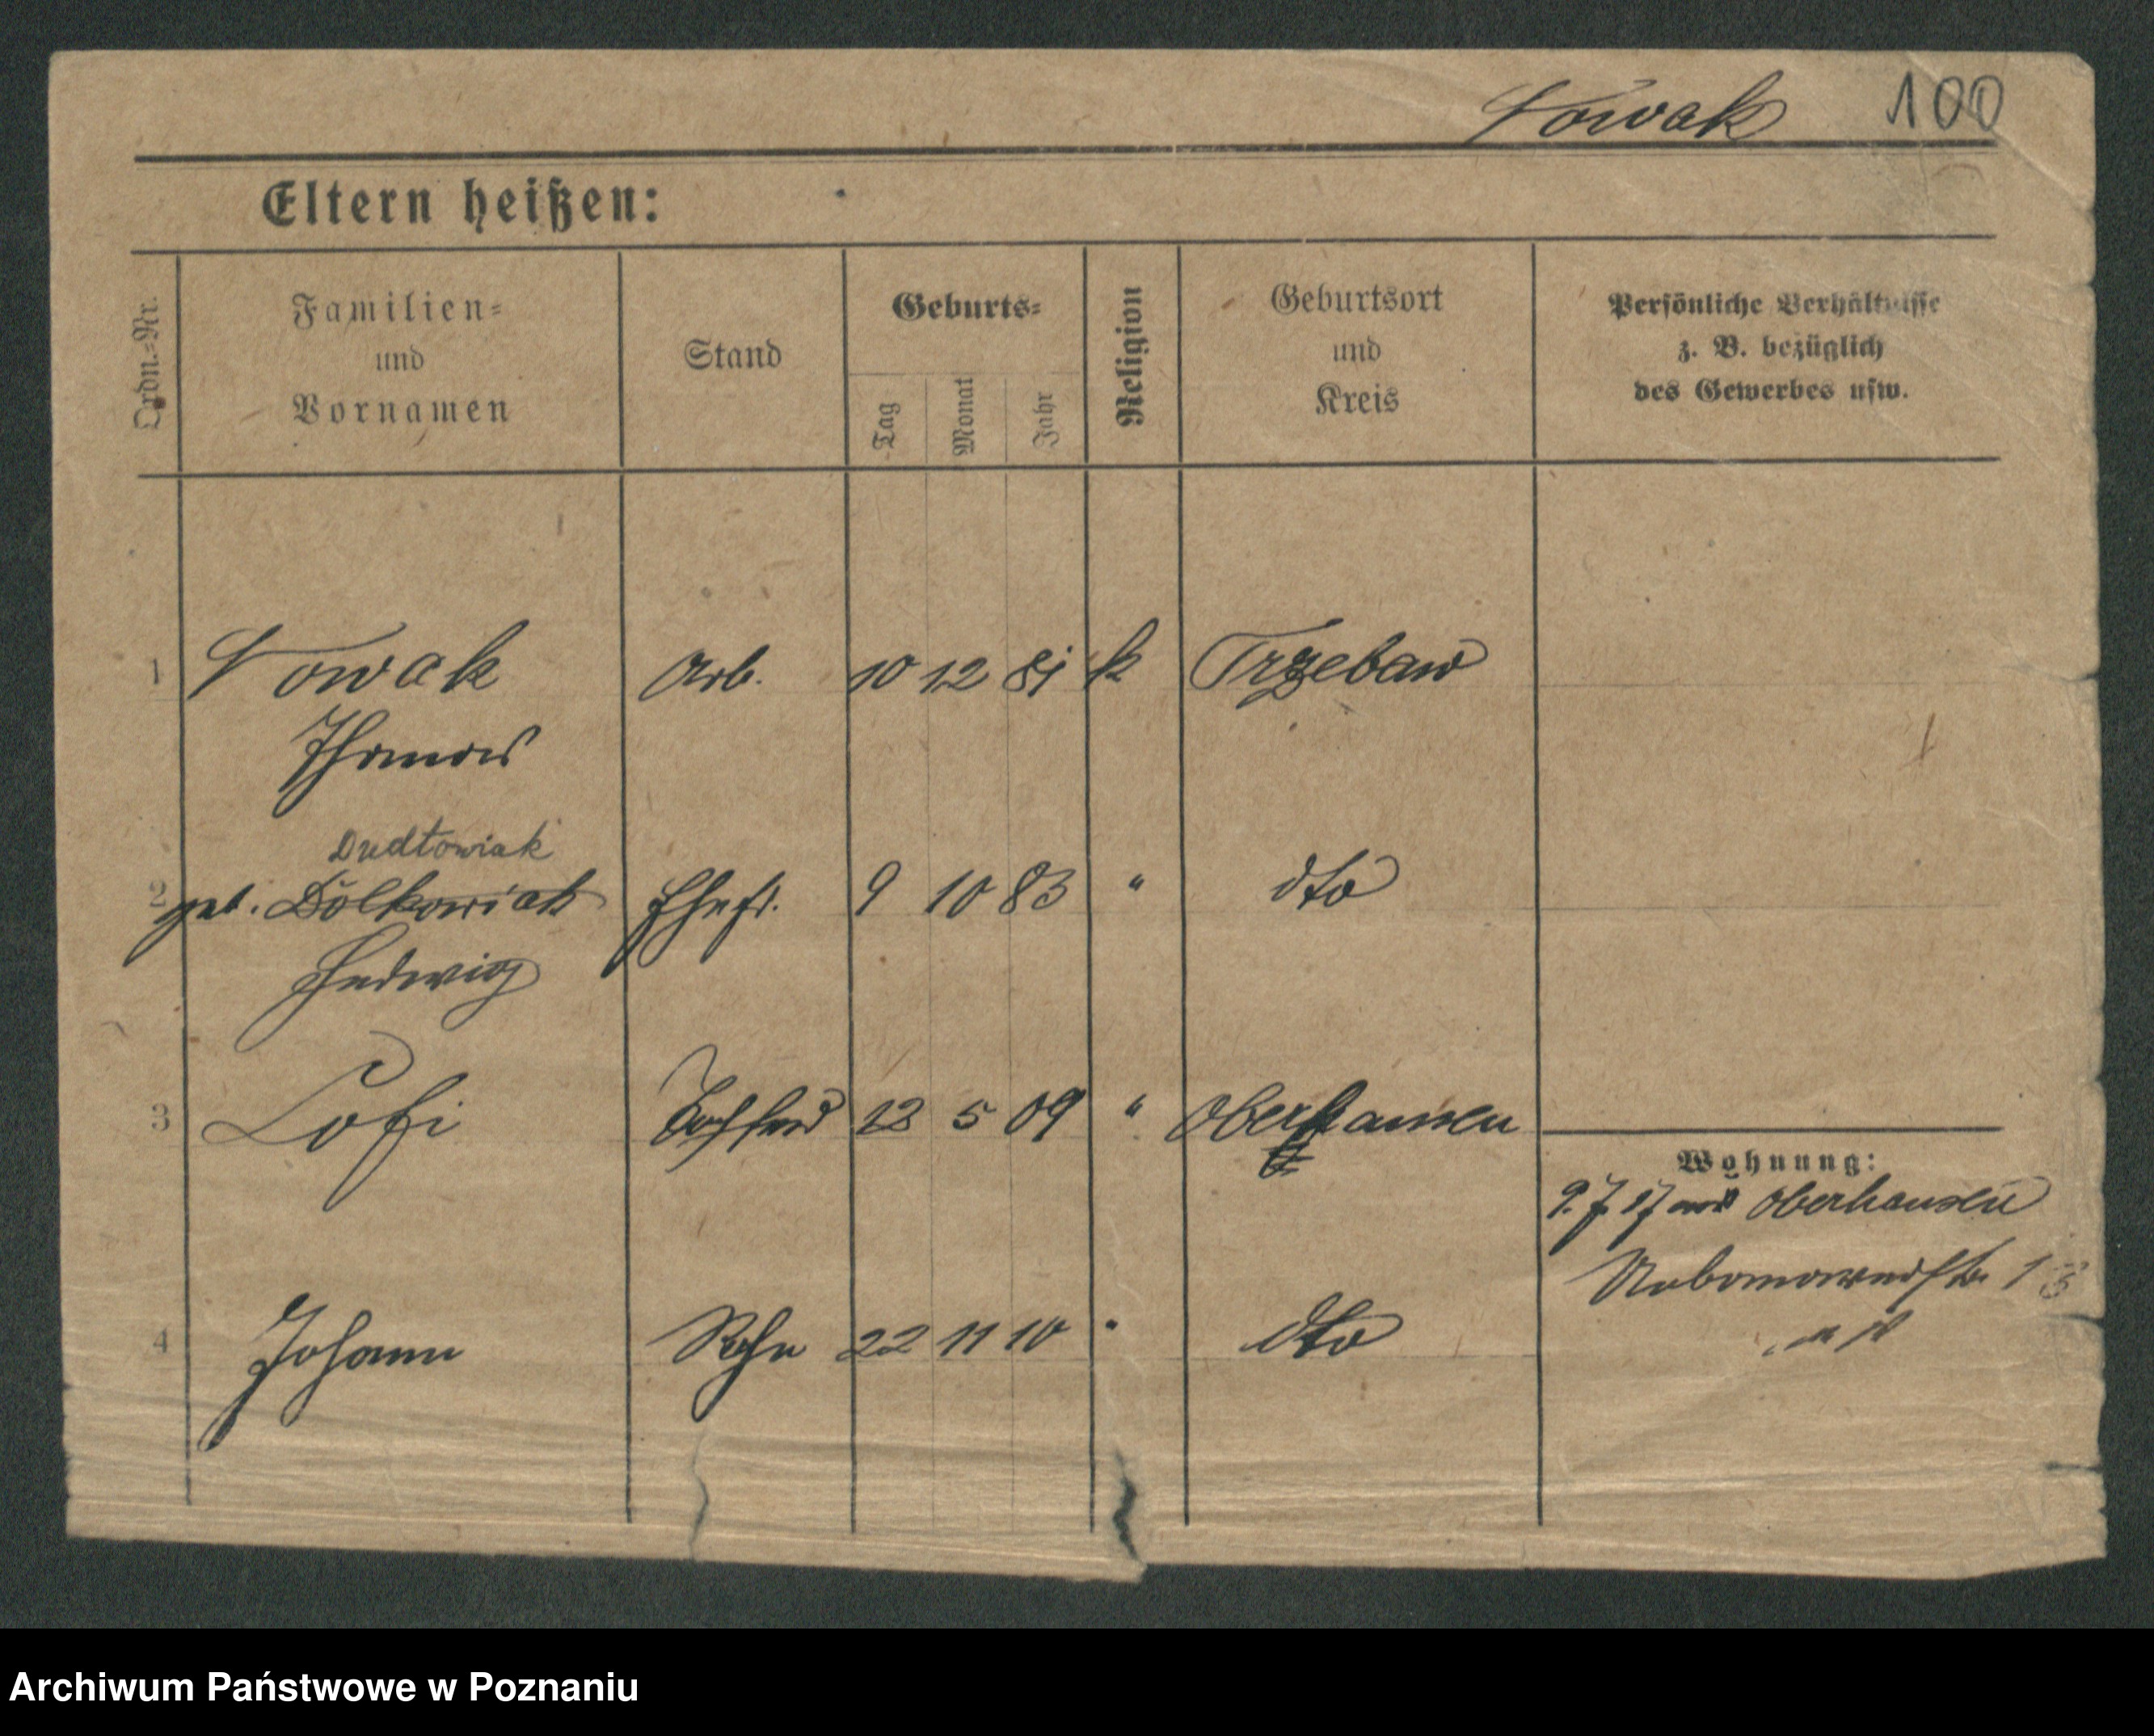 Nowak 100
Eltern heißen:
Ordn.-Nr.
Familien-
und
Vornamen
Stand
Geburts-
Tag
Monat
Jahr
Religion
Geburtsort
und
Kreis
Persönliche Verhältnisse
z. B. bezüglich
des Gewerbes usw.
1 Nowak Arb. 10 12 81 k Trzebaw
Thomas
Dudkowiak
2 geb. Dolkowiak Ehefr. 9 10 83 " dto
Hedwig
3 Sofi Tochter 5 09 " Oberhausen
Wohnung:
9.7.17 aus Oberhausen
4 Johann Sohn 22 11 10 " dto
Archiwum Państwowe w Poznaniu